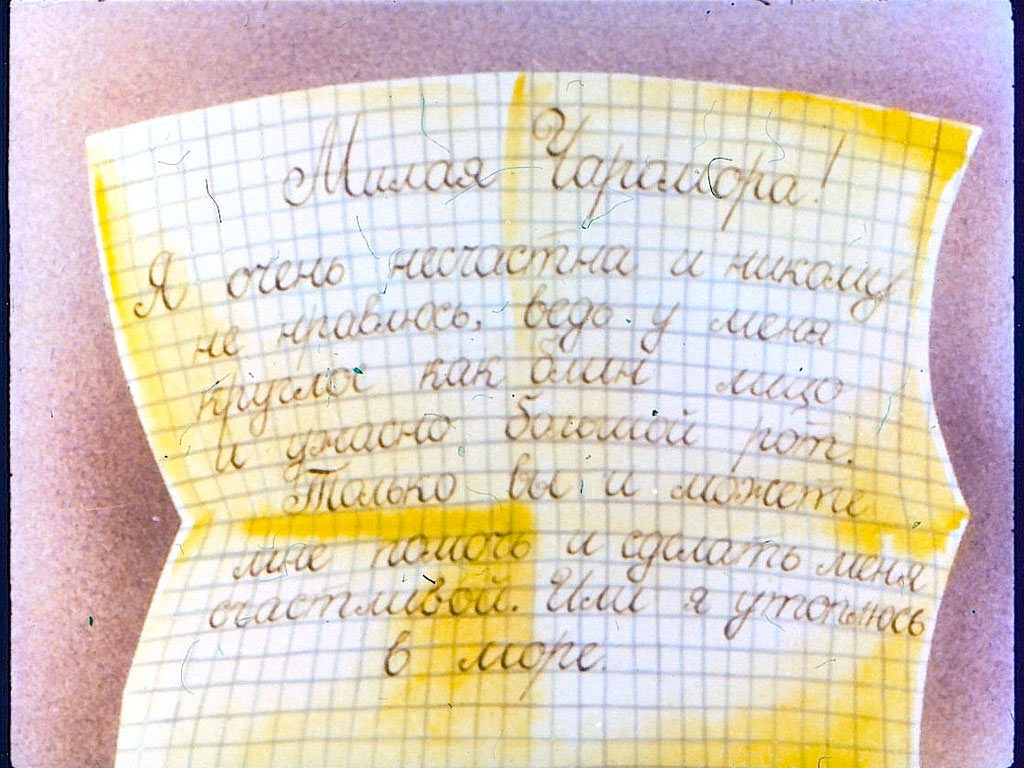 Милая Чаромора!
Я очень несчастна и никому
не нравлюсь, ведь у меня
круглое как блин лицо
и ужасно большой рот.
Только вы и можете
мне помочь и сделать меня
счастливой. Или я утоплюсь
в море.